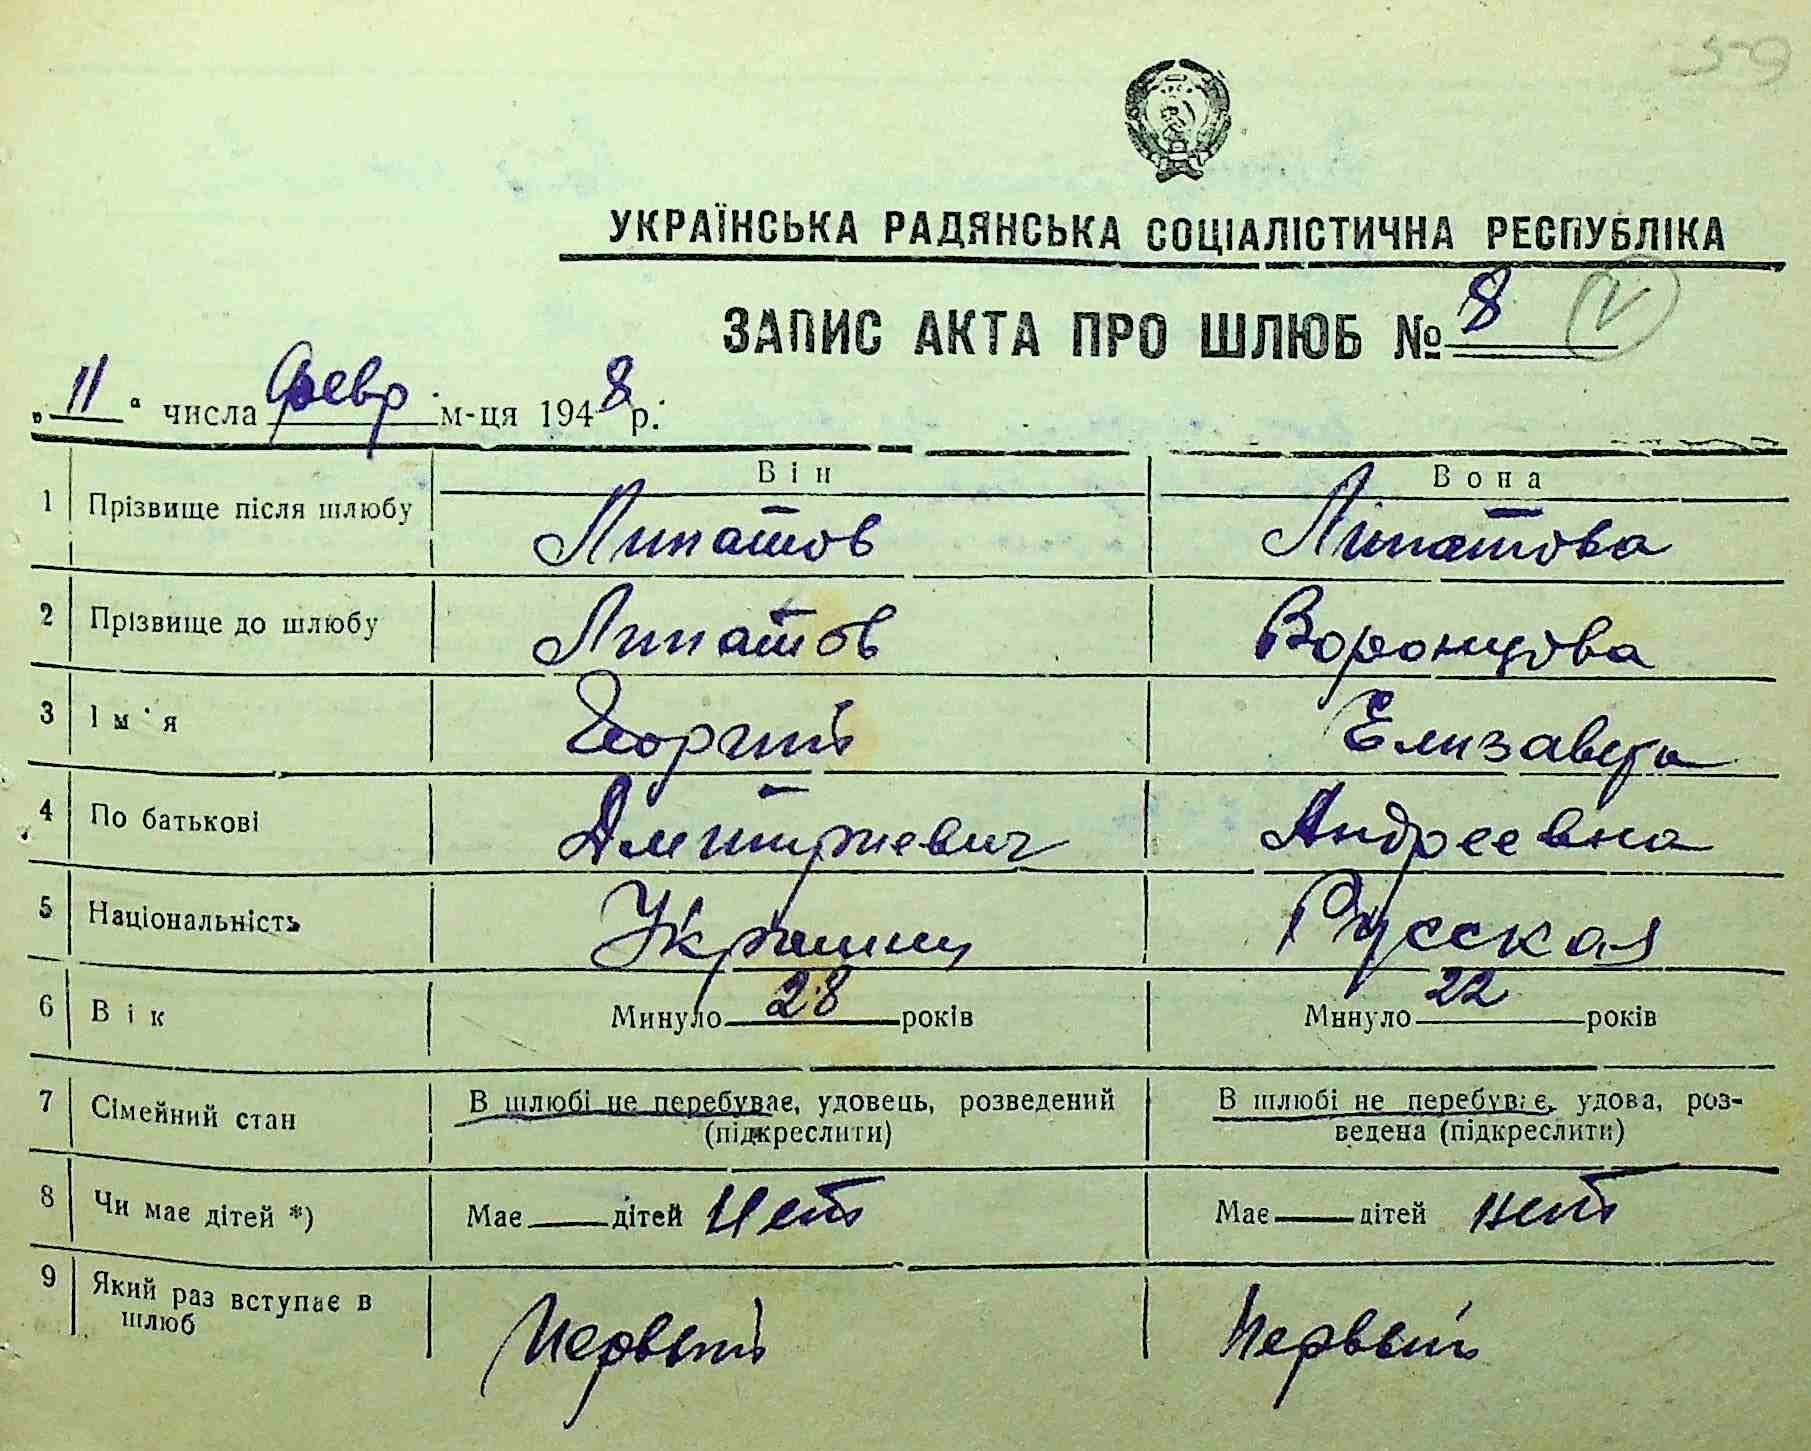 59
УКРАЇНСЬКА РАДЯНСЬКА СОЦІАЛІСТИЧНА РЕСПУБЛІКА
ЗАПИС АКТА ПРО ШЛЮБ № 8
„11“ числа февр. м-ця 1948 р.
Він Вона
1 Прізвище після шлюбу Липатов Липатова
2 Прізвище до шлюбу Липатов Воронцова
3 Ім'я Георгий Елизавета
4 По батькові Дмитриевич Андреевна
5 Національність Украинец Русская
6 Вік Минуло 28 років Минуло 22 років
7 Сімейний стан В шлюбі не перебуває, удовець, розведений В шлюбі не перебуває, удова, роз-
(підкреслити) ведена (підкреслити)
8 Чи має дітей *) Має — дітей Нет Має — дітей нет
9 Який раз вступає в
шлюб Первый Первый